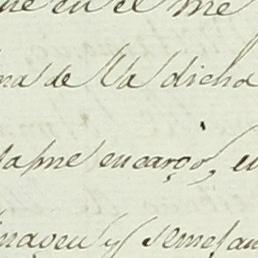 ue en el me
na de la dicha
ta me encargó, e
imagen y semejan